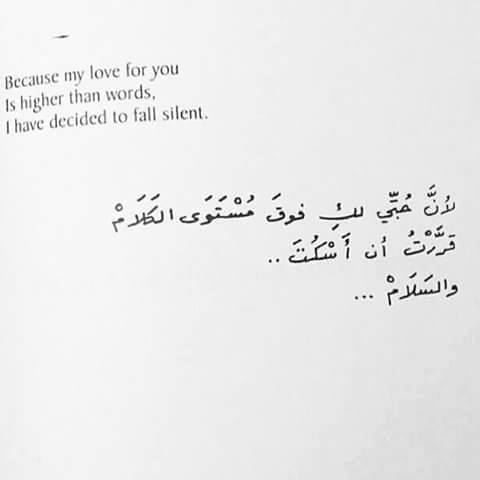 Because my love for you
Is higher than words,
I have decided to fall silent.
لأنَّ حُبِّي لكِ فوقَ مُسْتَوَى الكَلَامْ
قرَّرْتُ أن أَسْكُتَ ..
والسَلَامْ ...